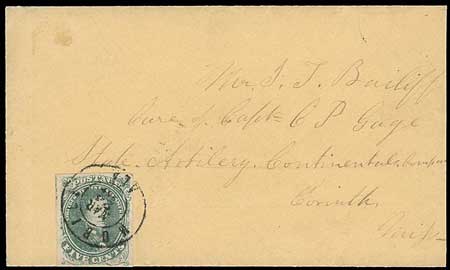 Mr J. T. Bailiff
Care of Capt C P Gage
State Artilery Continentals
Corinth
Miss
POSTAGE
FIVE CENTS
MOBILE
ALA